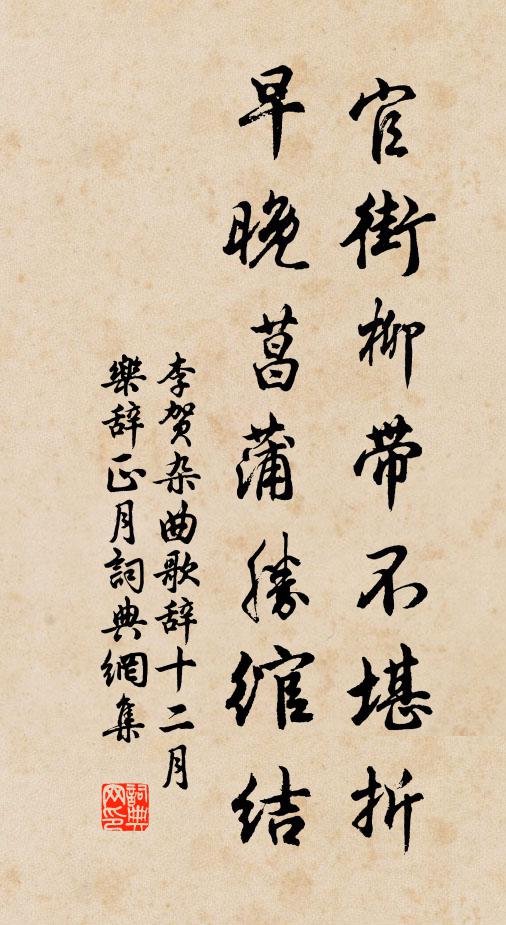 官街柳带不堪折
早晚菖蒲勝綰结
李贺杂曲歌辞十二月
樂辞正月詞典網集
詞典网印